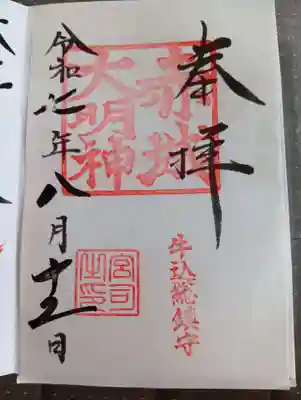 奉拝
赤城
大明神
牛込總鎮守
宮司
之印
令和七年八月十五日